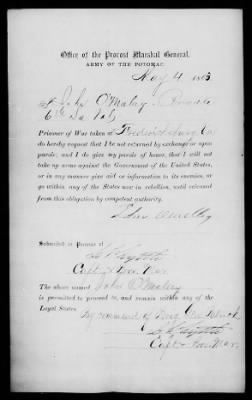 Office of the Provost Marshal General,
ARMY OF THE POTOMAC,
May 4, 1863.
I, John O'Malay, Private
6th La Vols
Prisoner of War taken at Fredericksburg Va
do hereby request that I be not returned by exchange or upon
parole; and I do give my parole of honor, that I will not
take up arms against the Government of the United States, or
in any manner give aid or information to its enemies, or
go within any of the States now in rebellion, until released
from this obligation by competent authority.
John
Submitted in Person of
Capt & Pro. Mar.
The above named John O'Malay
is permitted to proceed to, and remain within any of the
Loyal States
By command of Brig Gen Patrick
Capt & Pro. Mar.